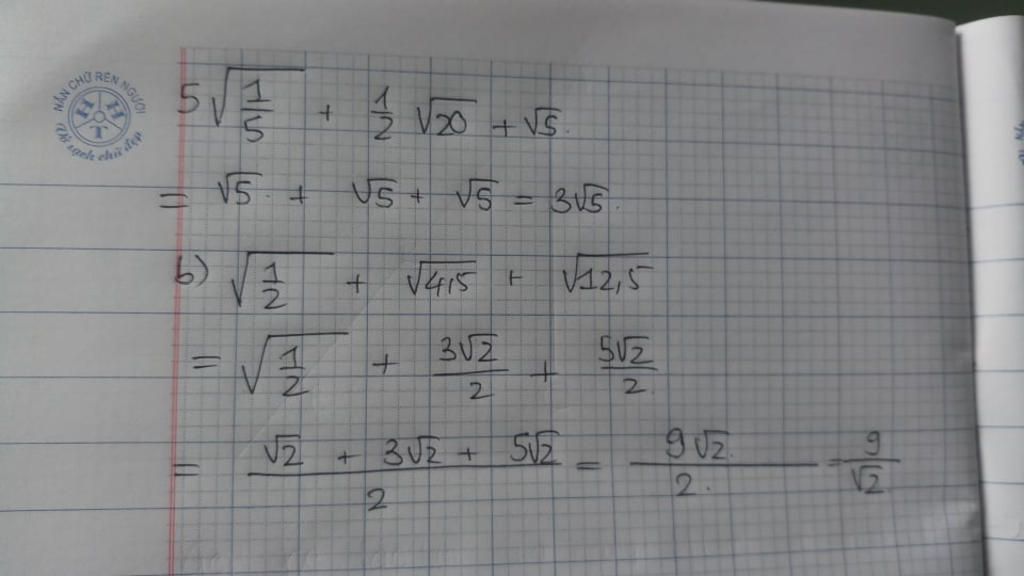 NẮN CHỮ RÈN NGƯỜI
HHT
5√(1/5) + 1/2 √20 + √5.
= √5 + √5 + √5 = 3√5.
b) √(1/2) + √4,5 + √12,5
= √(1/2) + 3√2/2 + 5√2/2
= (√2 + 3√2 + 5√2)/2 = 9√2/2 = 9/√2